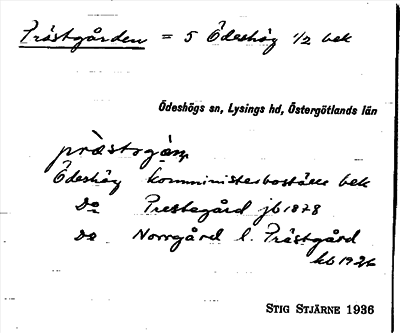 Prästgården = 5 Ödeshög 1/2 bek
Ödeshögs sn, Lysings hd, Östergötlands län
Ödeshög komministerboställe bek
Do Prestegård jb 1878
Do Norrgård l. Prästgård
kb 1926
STIG STJÄRNE 1936